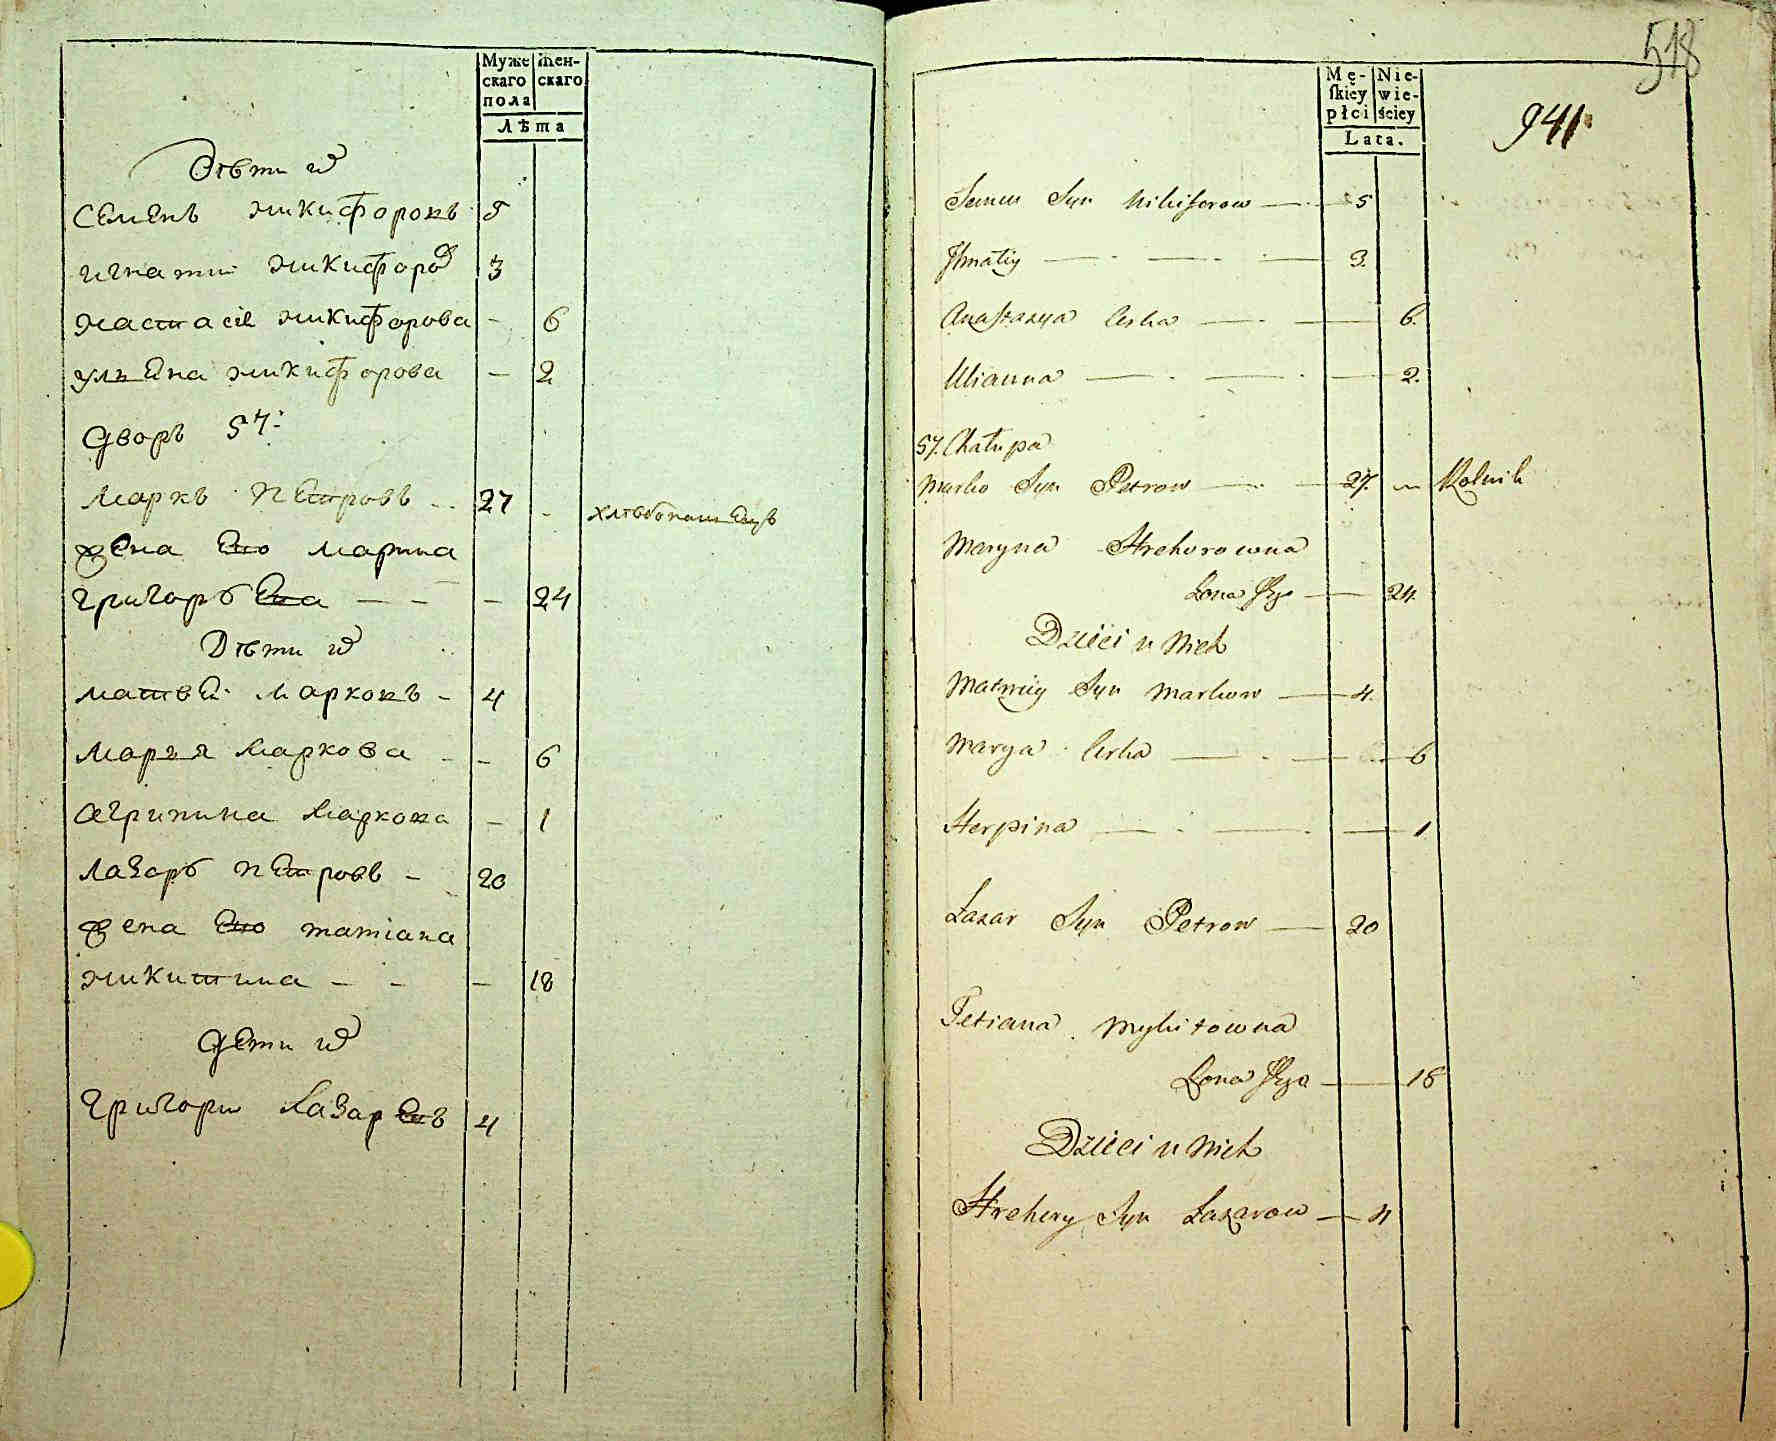 Муже
скаго
пола
Жен-
скаго
Лѣта
Дѣти их
Семенъ Никифоровъ 5
Игнатии Никифоров 3
Настасiя Никифорова - 6
Ульена Никифорова - 2
Дворъ 57:
Маркъ Петровъ - 27 - хлѣбопашецъ
Жена Его Марина
Григорьева - - - 24
Дѣти их
Матвеи Марковъ - 4
Марья Маркова - - 6
Агрипина Маркова - 1
Лазарь Петровъ - 20
Жена Его Татiана
Никитина - - - 18
Дети их
Григори Лазаревъ 4
518
Mę-
ſkiey
płci
Nie-
wie-
ściey
Lata.
941
Semen Syn Nikiforow — 5
Ihnatiy — 3.
Anastazya Corka — 6.
Ulianna — 2.
57. Chałupa
Marko Syn Petrow — 27. — Rolnik
Maryna Hrehorowna
Żona Jego — 24.
Dzieci u Nich
Matwiy Syn Markow — 4.
Marya Corka — 6
Herpina — 1
Łazar Syn Petrow — 20
Tetiana Mykitowna
Żona Jego — 18
Dzieci u Nich
Hrehory Syn Łazarow — 4